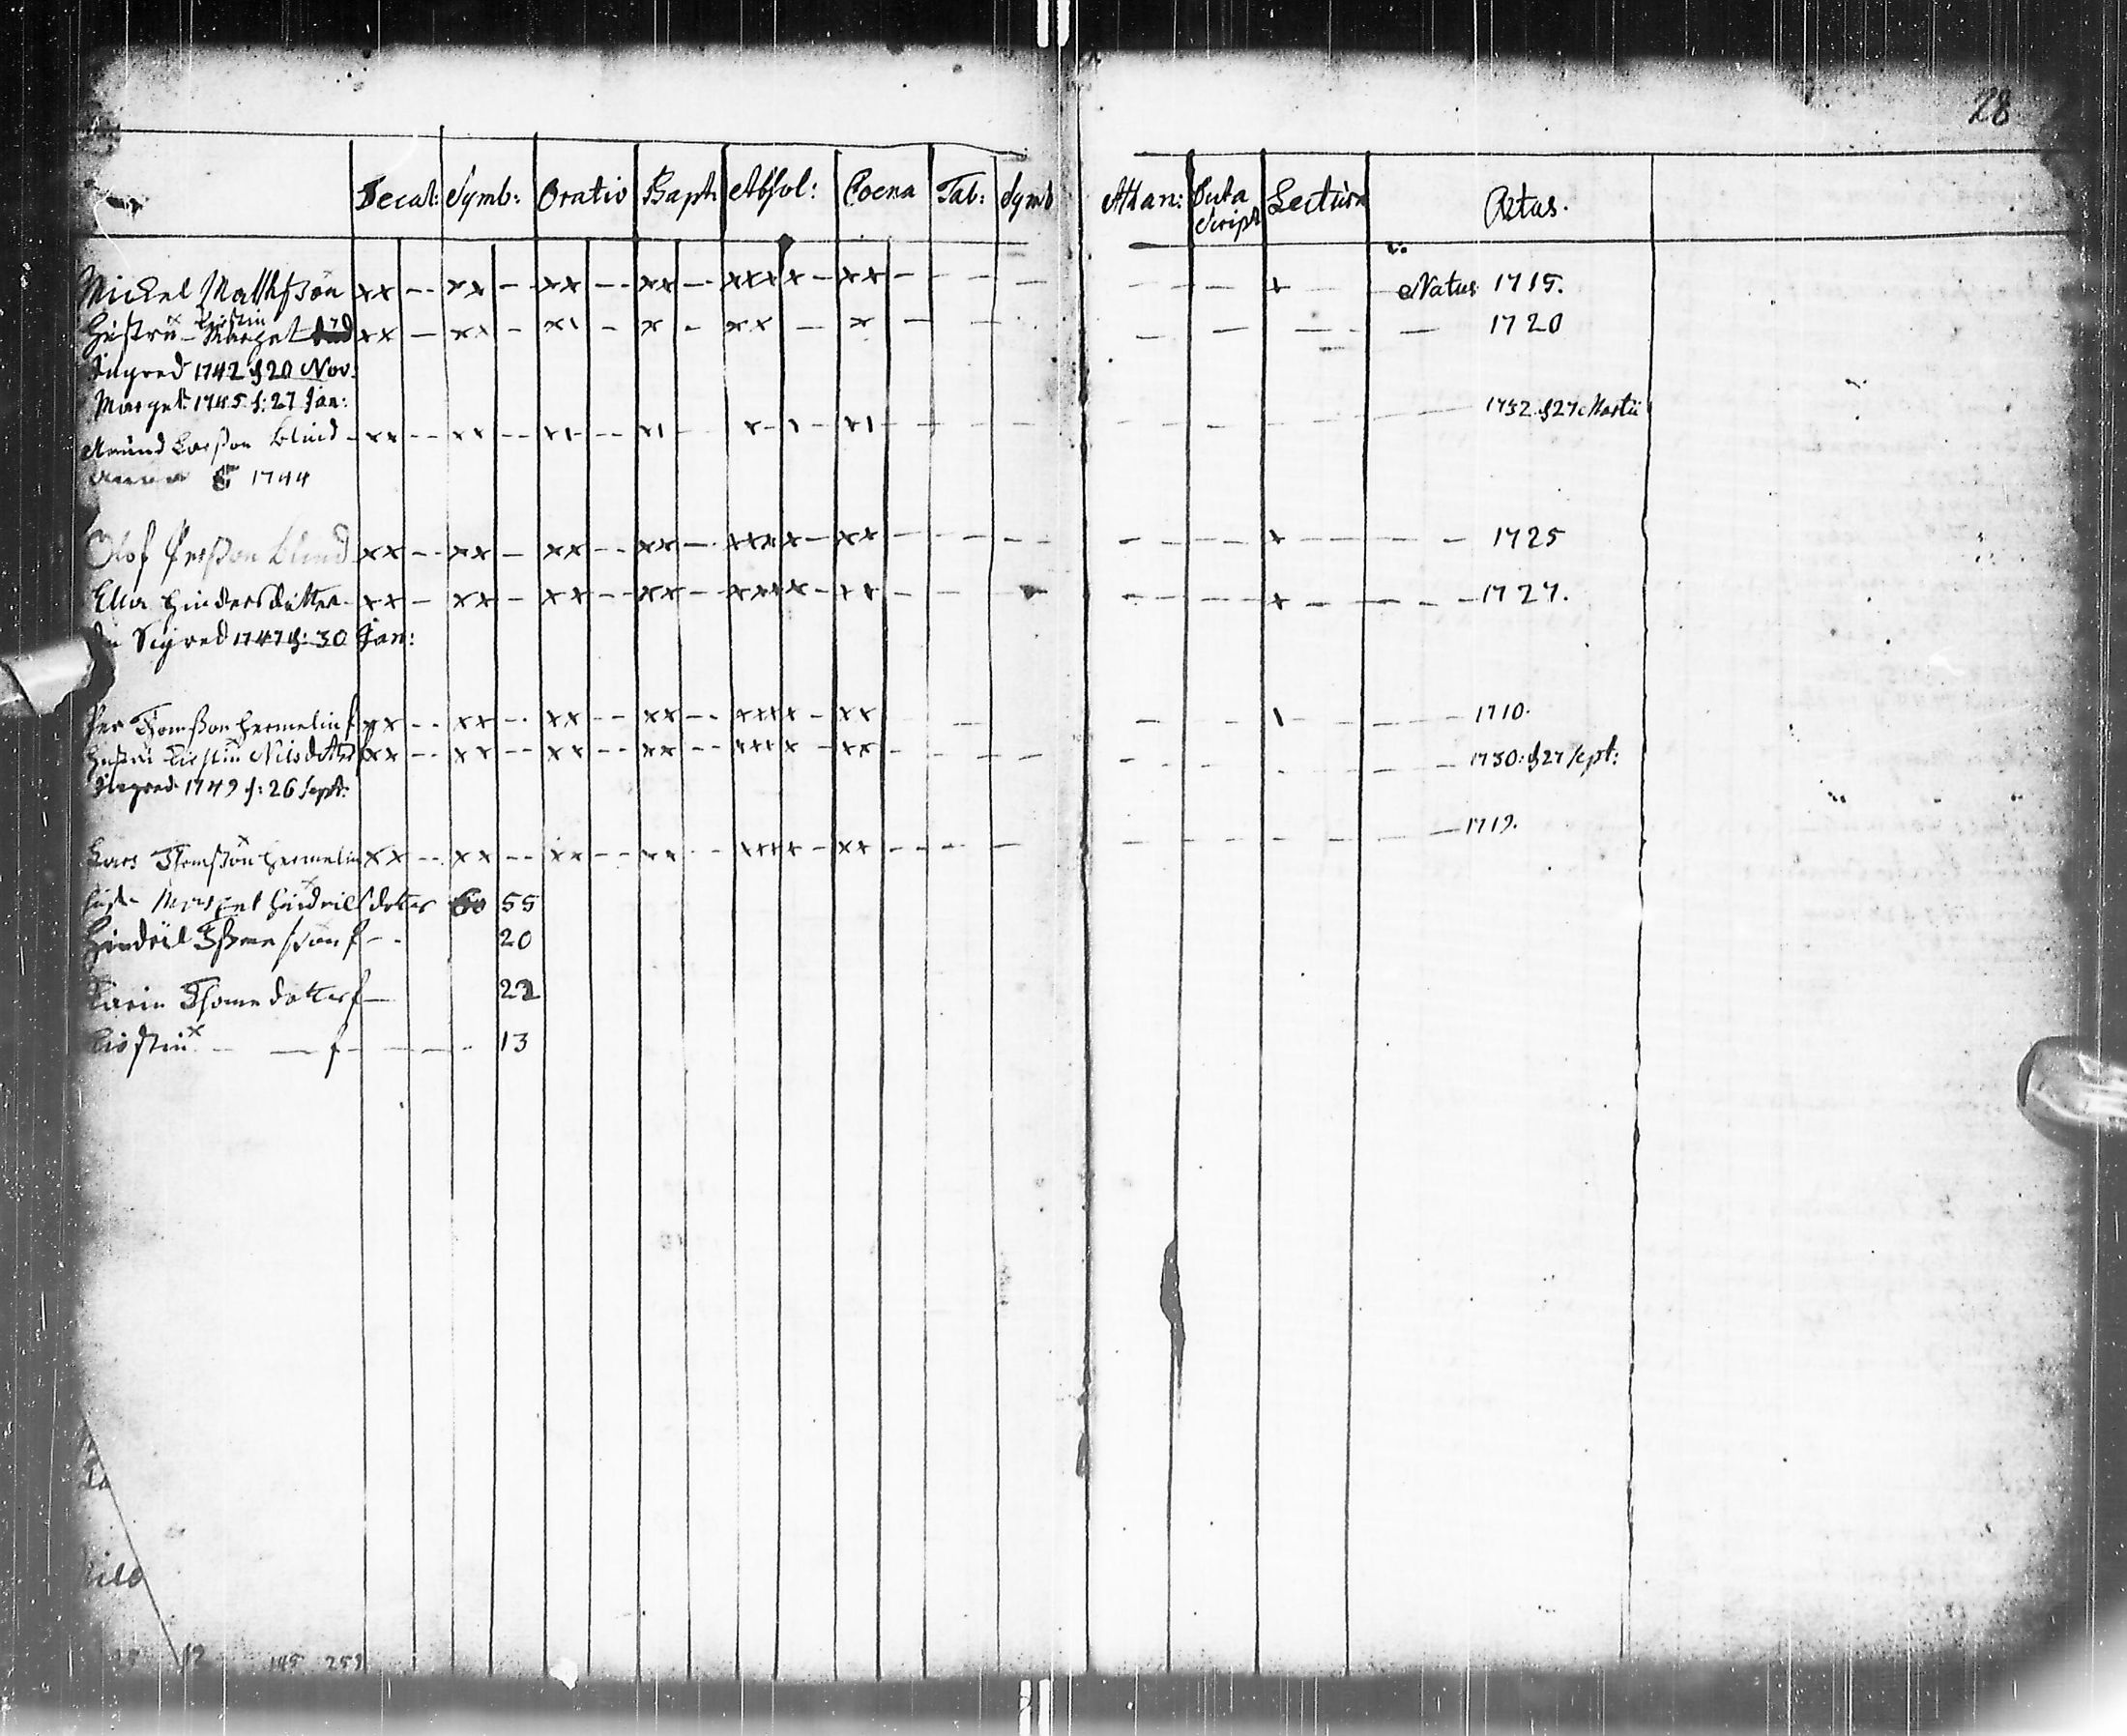 28
Decal: Symb: Oratio Bapt Absol: Coena Tab: Symb Athan: Dicta Script Lectura Ætas.
Mickel Matthsson xx -- xx - xx -- xx -- xxxx - xx - - - - - - x - Natus 1715.
Hustru Kirstin Marget xx - x\ - x\ - x - xx - x - - - - - - - 1720
Ingred 1742 f 20 Nov:
Marget 1745 f: 27 Jan:
Amund Larsson Blind - xx -- xx -- x\ -- x\ x- \ - x\ - - - - - - 1732 f 27 Martii
Anna 1744
Olof Persson Blind xx -- xx - xx -- xx -- xxxx - xx - - - - - - x - - - 1725
Ella Hindersdotter xx - xx - xx - xx - xxxx - xx - - - - - x - - - 1727.
Sigred 1747 f: 30 Jan:
Per Thomsson Hermelin f xx -- xx -- xx -- xx -- xxxx - xx - - - \ - - 1710.
Hustru Kirstin Nilsdotter xx -- xx -- xx -- xx -- xxxx - xx - - - - - - - 1730: f 27 Sept:
Ingred 1749 f: 26 Sept:
Lars Thomsson Hermelin xx -- xx -- xx -- xx -- xxxx - xx - - - - - - - - 1719.
Hust: Marget Hindrilsdoter 55
Hindril Thomesson f - - 20
Karin Thomedotter f - 22
Kirstin x - - f - - - 13
12 145 259